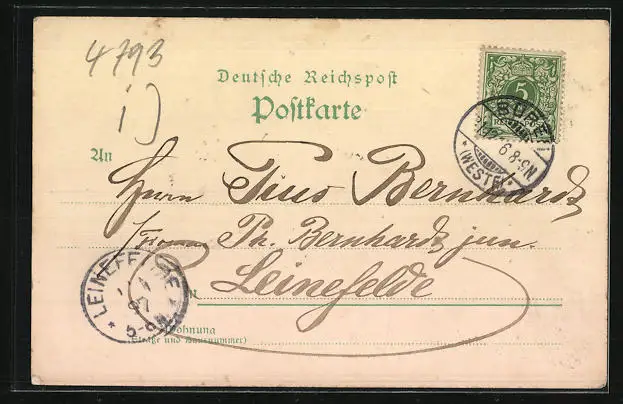 4793
i)
Deutsche Reichspost
Postkarte
5
An
Herrn Titus Bernhardt
Firma Ph. Bernhardt jun.
in Leinefelde
Wohnung
(Straße und Hausnummer)
BÜREN
(WESTF.)
6-8-9N
LEINEFELDE
97
5-6N